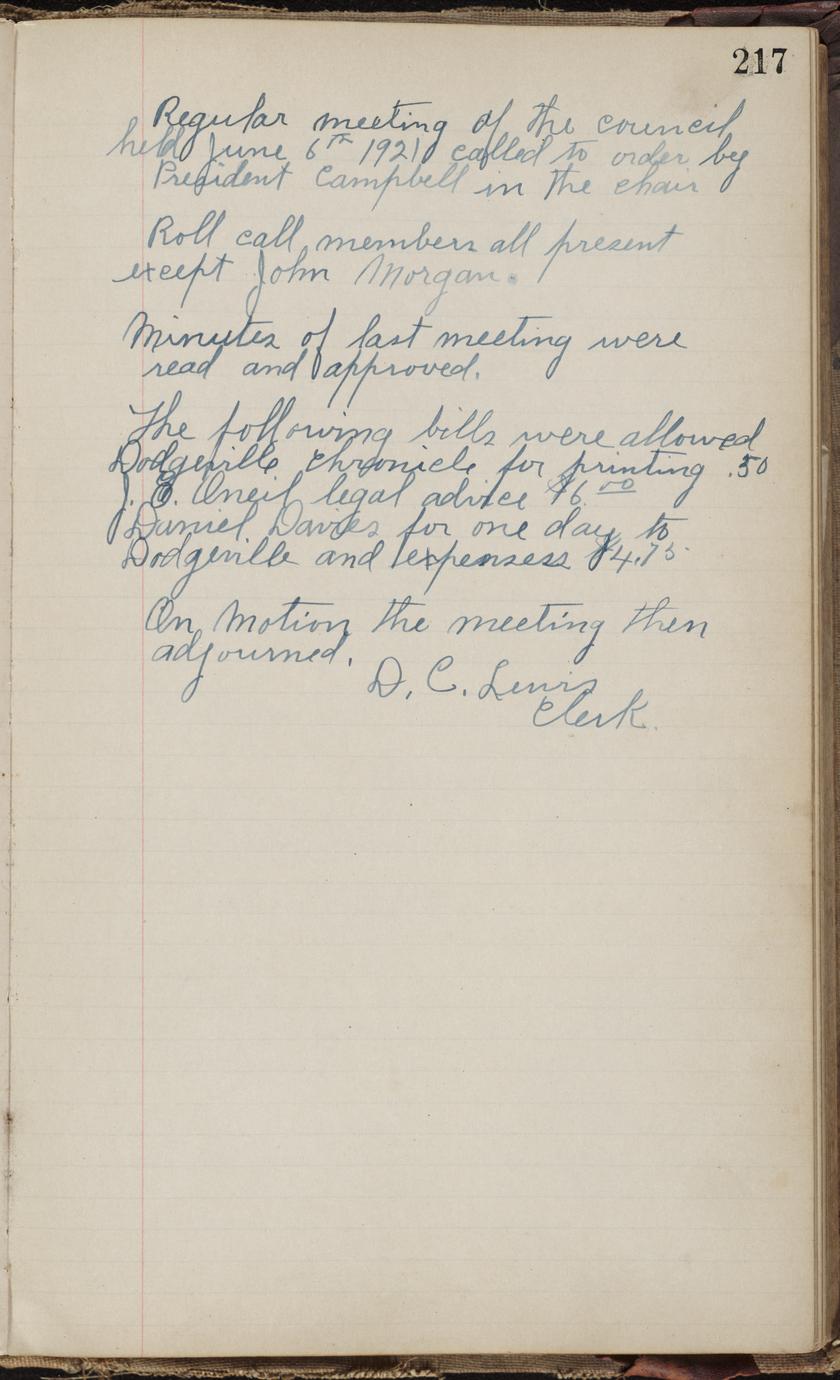 217
Regular meeting of the council
held June 6th 1921 called to order by
President Campbell in the chair
Roll call members all present
except John Morgan.
Minutes of last meeting were
read and approved.
The following bills were allowed
Dodgeville chronicle for printing .50
J. E. Oneil legal advice $6.00
Daniel Davies for one day to
Dodgeville and expensess $4.75
On Motion the meeting then
adjourned.
D. C. Lewis
Clerk.